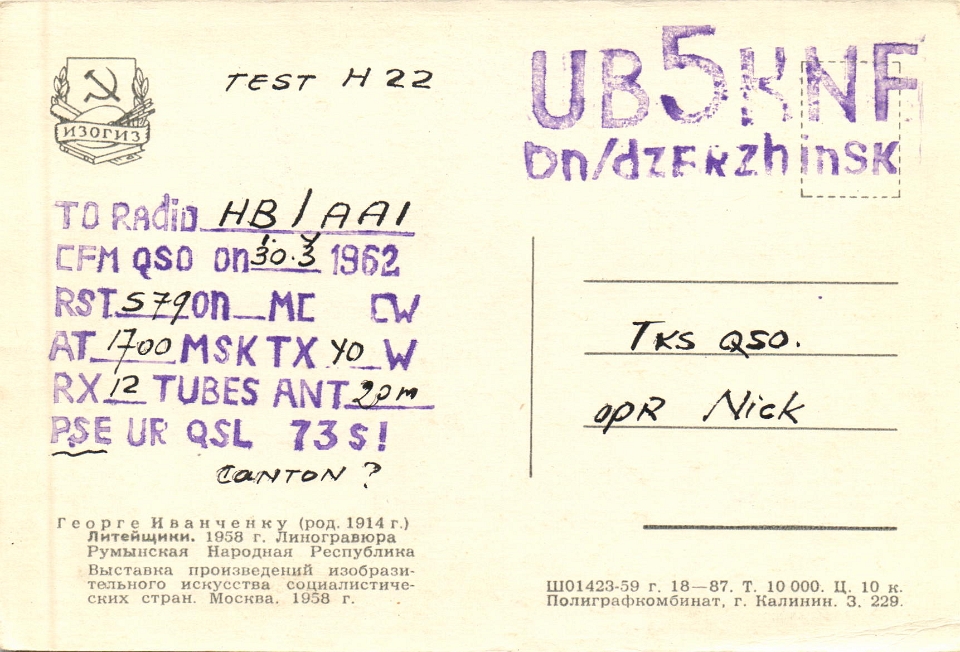 TEST H22
UB5KNF
Dn/dzERzhinSK
ИЗОГИЗ
TO RadiO HB1AA1
CFM QSO On 30.3 1962
RST 579 On MC CW
AT 1700 MSK TX 40 W
RX 12 TUBES ANT 20m
PSE UR QSL 73S!
CANTON ?
TKS QSO.
OPR Nick
Георге Иванченку (род. 1914 г.)
Литейщики. 1958 г. Линогравюра
Румынская Народная Республика
Выставка произведений изобрази-
тельного искусства социалистиче-
ских стран. Москва. 1958 г.
Ш01423-59 г. 18—87. Т. 10 000. Ц. 10 к.
Полиграфкомбинат, г. Калинин. З. 229.